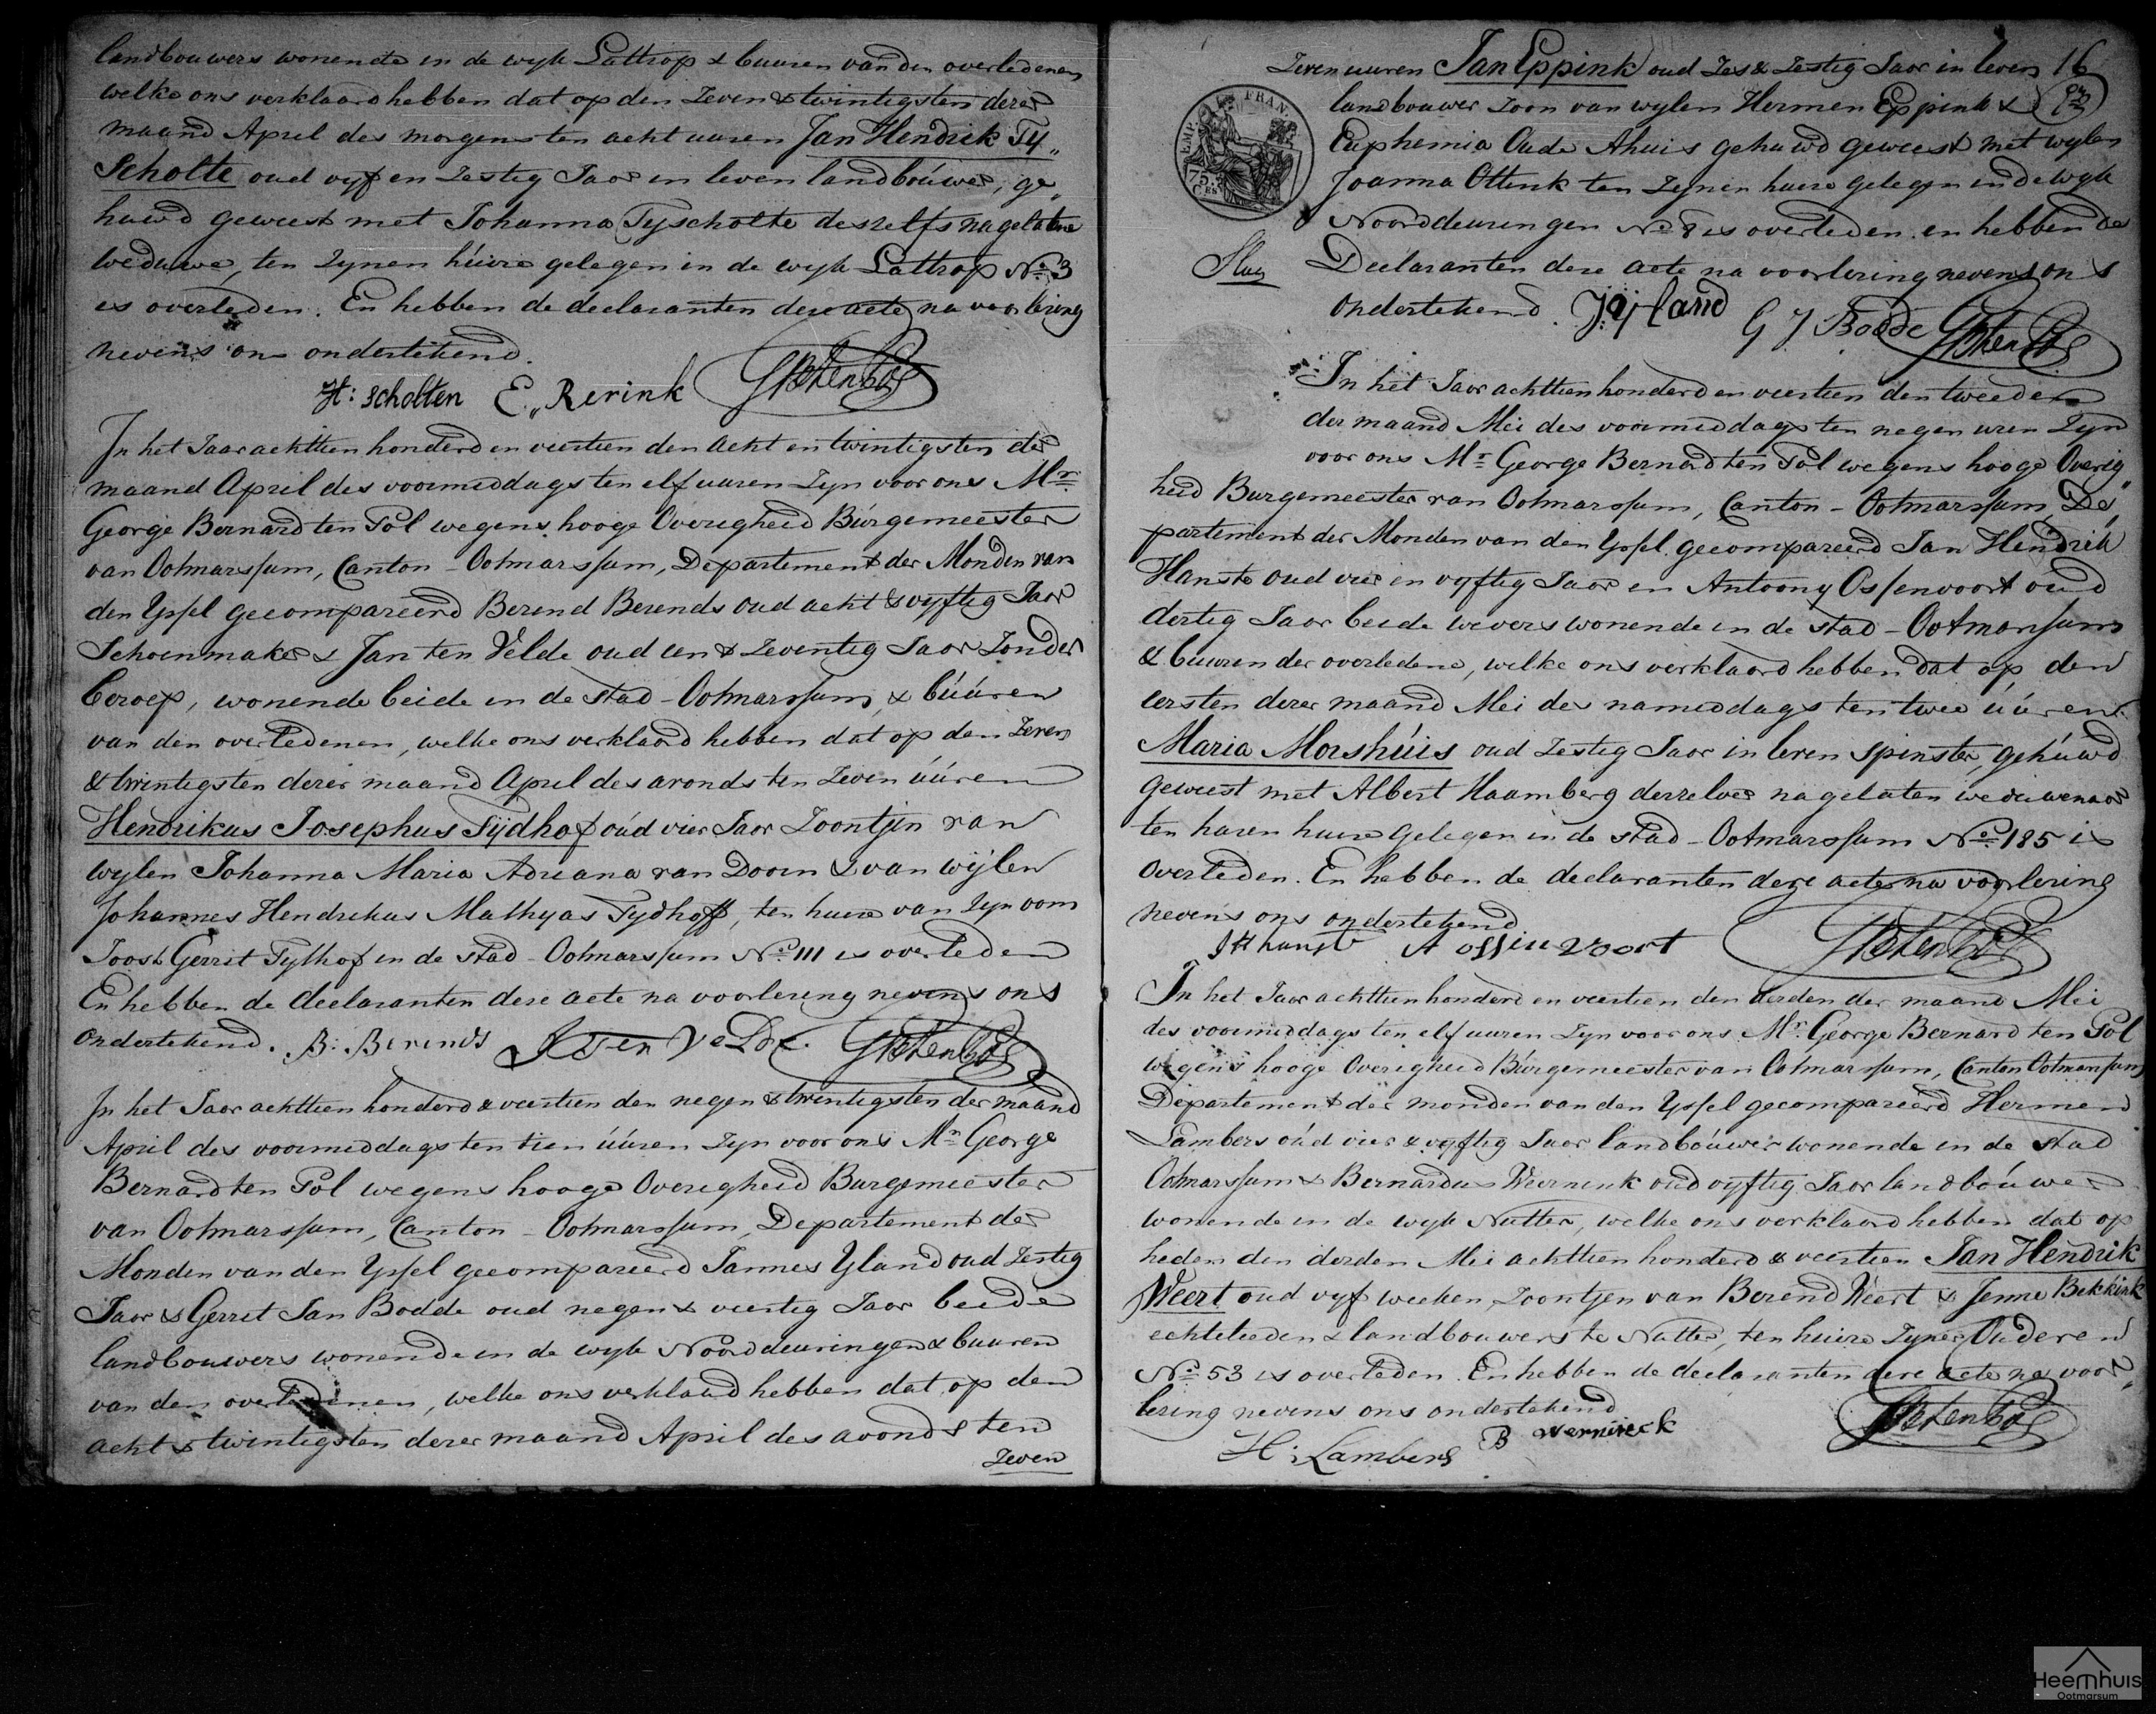 landbouwers wonende in de wyk Lattrop & buuren van den overledenen
welke ons verklaard hebben dat op den Zeven & twintigsten dezer
maand April des morgens ten acht uuren Jan Hendrik Ty„
Scholte oud vyf en Zestig Jaar in leven landbouwer, ge„
huwd geweest met Johanna Tyscholte deszelfs nagelatene
weduwe, ten Zynen huize gelegen in de wyk Lattrop No. 3
is overleden. En hebben de declaranten deze acte na voorlezing
nevens ons ondertekend.
H: Scholten E„ Rerink GBtenPol
In het Jaar achttien honderd en veertien den acht en twintigsten der
maand April des voormiddags ten elf uuren Zyn voor ons Mr.
George Bernard ten Pol wegens hooge Overigheid Burgemeester
van Ootmarssum, Canton - Ootmarssum, Departement der Monden van
den Yssel gecompareerd Berend Berends oud acht & vyftig Jaar
Schoenmaker & Jan ten Velde oud een & Zeventig Jaar Zonder
beroep, wonende beide in de stad - Ootmarssum, & buuren
van den overledenen, welke ons verklaard hebben dat op den Zeven
& twintigsten dezer maand April des avonds ten Zeven uuren
Hendrikus Josephus Tijdhof oud vier Jaar Zoontjen van
wylen Johanna Maria Adriana van Doorn & van wijlen
Johannes Hendrikus Mathyas Tydhoff, ten huize van Zyn oom
Joost Gerrit Tythof in de stad - Ootmarssum No. 111 is overleden
En hebben de declaranten deze acte na voorlezing nevens ons
ondertekend. B: Berends J Ten Velde. GBtenPol
In het Jaar achttien honderd & veertien den negen & twintigsten der maand
April des voormiddags ten tien uuren Zyn voor ons Mr. George
Bernard ten Pol wegens hooge Overigheid Burgemeester
van Ootmarssum, Canton - Ootmarssum, Departement der
Monden van den Yssel gecompareerd Jannes Yland oud Zestig
Jaar & Gerrit Jan Bodde oud negen & veertig Jaar beide
landbouwers wonende in de wyk Noorddeuringen & buuren
van den overledenen, welke ons verklaard hebben dat op den
acht & twintigsten dezer maand April des avonds ten
Zeven
Zeven uuren Jan Eppink oud Zes & Zestig Jaar in leven 16
landbouwer Zoon van wylen Hermen Eppink &
Euphemia Oude Ahuis gehuwd geweest met wylen
Joanna Ottink ten Zynen huize gelegen in de wyk
Noorddeuringen No 8 is overleden. en hebben de
Declaranten deze acte na voorlezing nevens ons
ondertekend. J: yland G J Bodde GBtenPol
EMP. FRAN
75
CES
In het Jaar achttien honderd en veertien den tweeden
der maand Mei des voormiddags ten negen uren Zyn
voor ons Mr. George Bernard ten Pol wegens hooge Overig„
heid Burgemeester van Ootmarssum, Canton - Ootmarssum, De„
partement der Monden van den Yssel gecompareerd Jan Hendrik
Hanste oud vier en vyftig Jaar en Antoony Ossenvoort oud
dertig Jaar beide wevers wonende in de stad - Ootmarssum
& buuren der overledene, welke ons verklaard hebben dat op den
eersten dezer maand Mei des namiddags ten twee uuren
Maria Morshuis oud Zestig Jaar in leven spinster, gehuwd
geweest met Albert Haamberg derzelver nagelaten weduwenaar
ten haren huize gelegen in de stad - Ootmarssum No. 185 is
overleden. En hebben de declaranten deze acte na voorlezing
nevens ons ondertekend
A ossinvoort GBtenPol
In het Jaar achttien honderd en veertien den derden der maand Mei
des voormiddags ten elf uuren Zyn voor ons Mr. George Bernard ten Pol
wegens hooge Overigheid Burgemeester van Ootmarssum, Canton Ootmarssum
Departement der monden van den Yssel gecompareerd Hermen
Lambers oud vier & vyftig Jaar landbouwer wonende in de stad
Ootmarssum & Bernardus Weernink oud vyftig Jaar landbouwer
wonende in de wyk Nutter, welke ons verklaard hebben dat op
heden den derden Mei achttien honderd & veertien Jan Hendrik
Weert oud vyf weeken Zoontjen van Berend Weert & Jenne Bekkink
echtelieden & landbouwers te Nutter, ten huize Zyner Ouderen
No. 53 is overleden. En hebben de declaranten deze acte na voor„
lezing nevens ons ondertekend
H: Lambers B Wernineck GBtenPol
Heemhuis
Ootmarsum